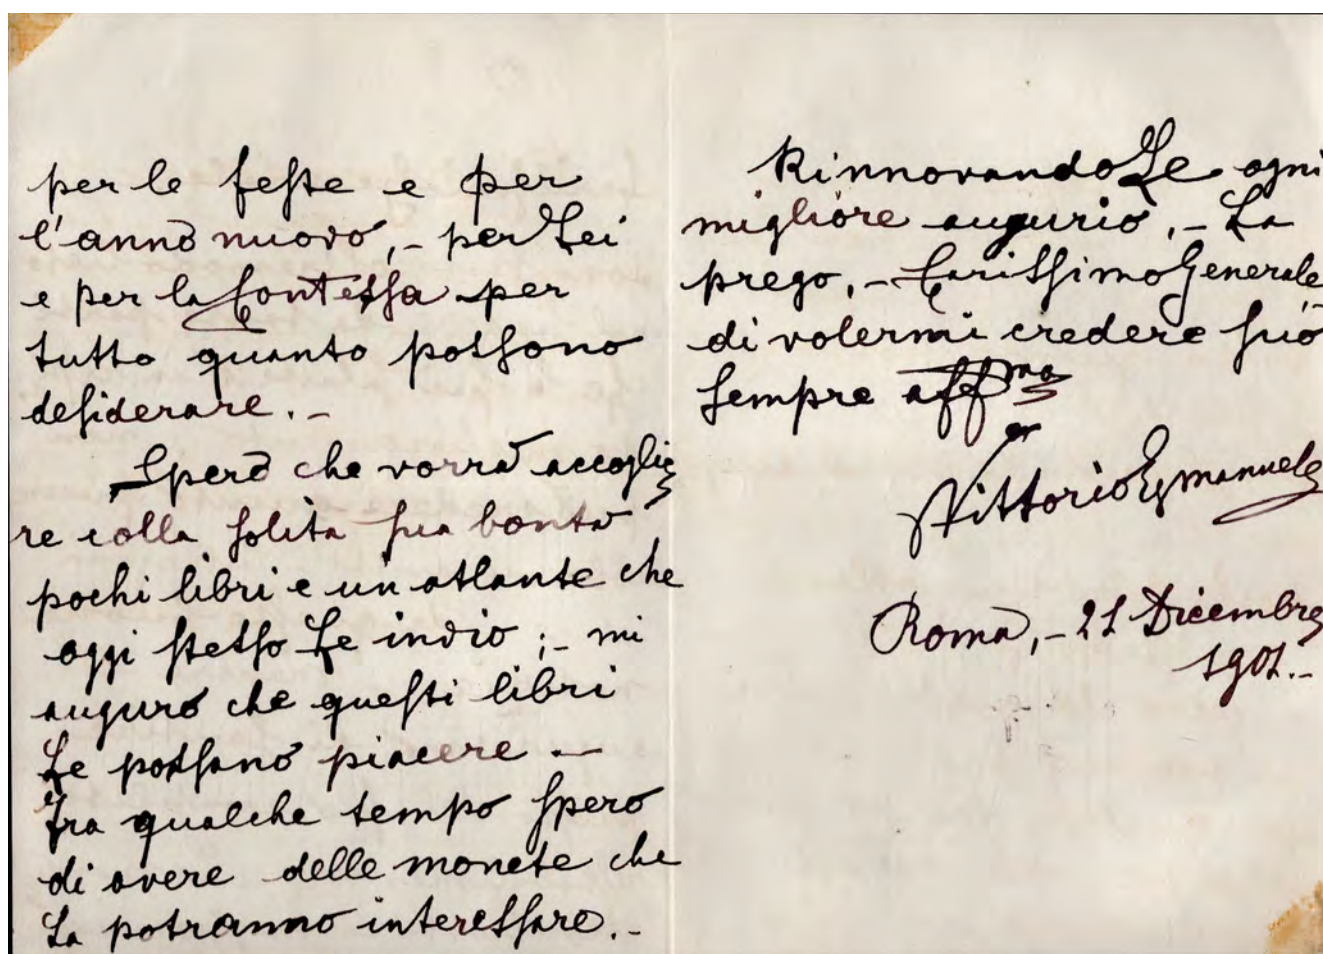 per le feste e per
l'anno nuovo, - per Lei
e per la Contessa per
tutto quanto possono
desiderare. -
Spero che vorrà accoglie
re colla solita sua bontà
pochi libri e un atlante che
oggi stesso Le invio; - mi
auguro che questi libri
Le possano piacere -
Fra qualche tempo spero
di avere delle monete che
La potranno interessare. -
Rinnovando Le ogni
migliore augurio, - La
prego, - Carissimo Generale
di volermi credere suo
sempre aff^mo
Vittorio Emanuele
Roma, - 21 Dicembre
1901. -